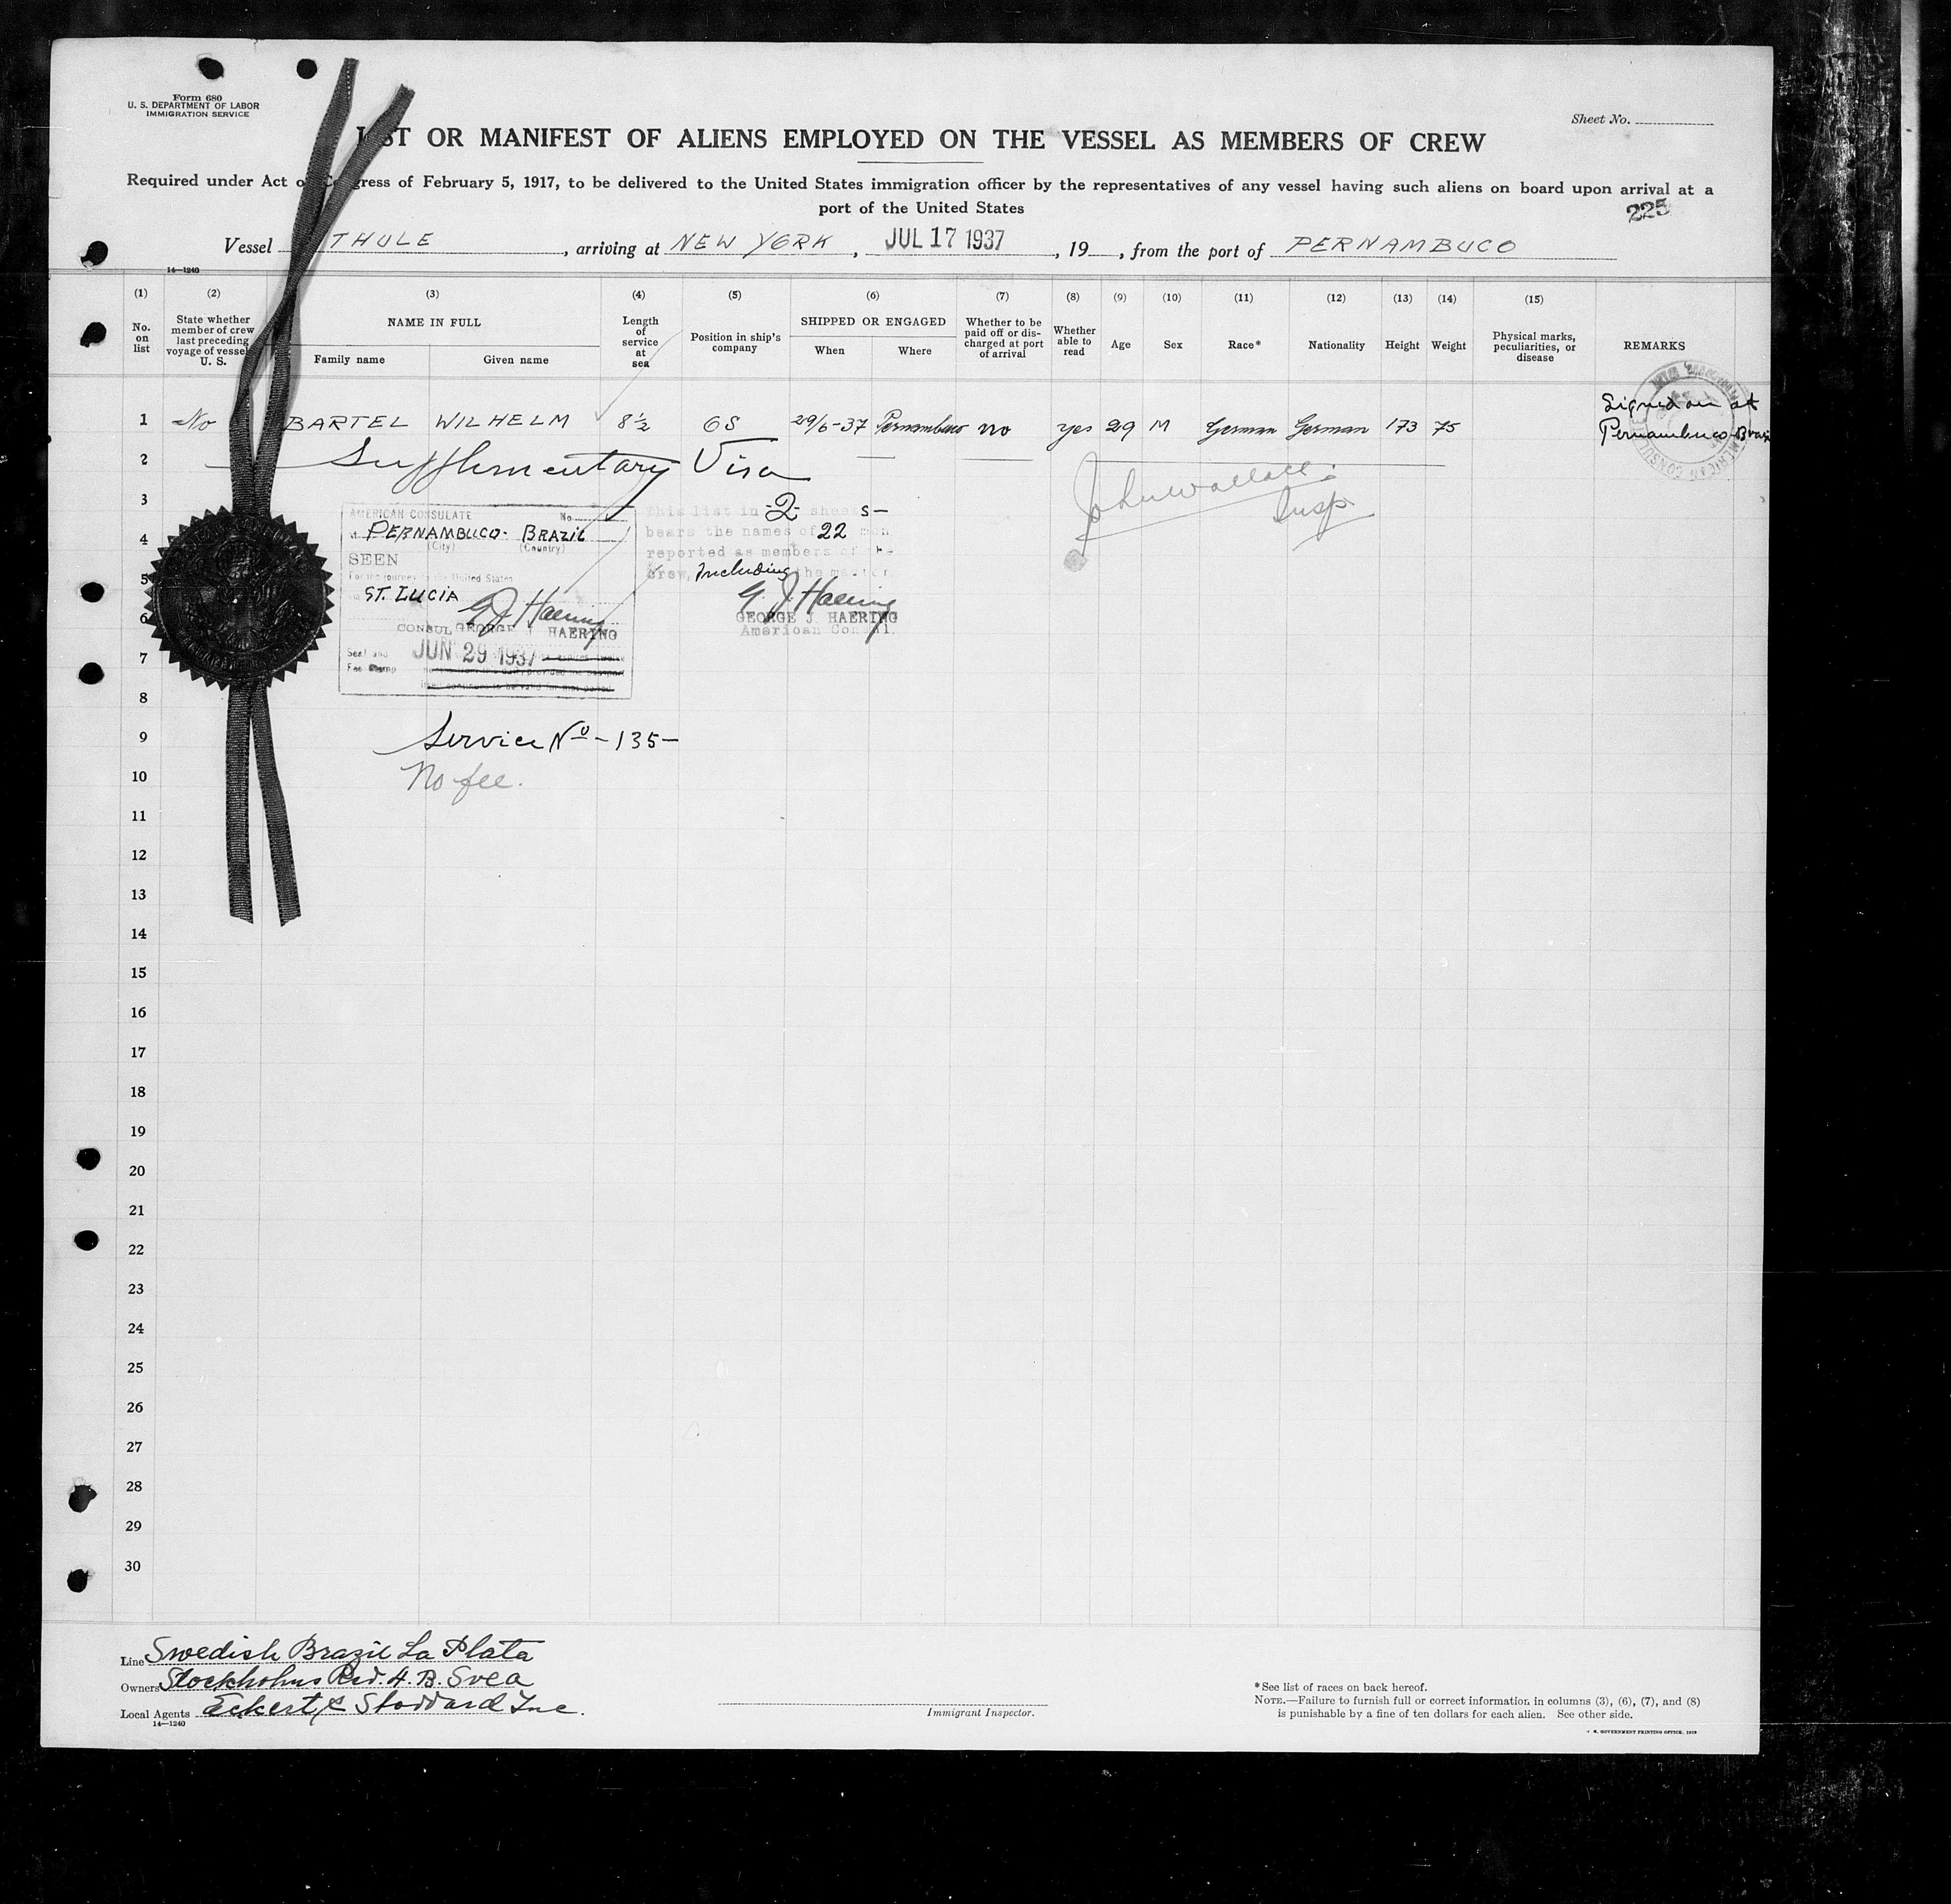 Form 680
U. S. DEPARTMENT OF LABOR
IMMIGRATION SERVICE
Sheet No.
LIST OR MANIFEST OF ALIENS EMPLOYED ON THE VESSEL AS MEMBERS OF CREW
Required under Act of Congress of February 5, 1917, to be delivered to the United States immigration officer by the representatives of any vessel having such aliens on board upon arrival at a
port of the United States
225
Vessel THULE, arriving at NEW YORK, JUL 17 1937, 19, from the port of PERNAMBUCO
14—1240
(1) (2) (3) (4) (5) (6) (7) (8) (9) (10) (11) (12) (13) (14) (15)
No. on list
State whether member of crew last preceding voyage of vessel U. S.
NAME IN FULL
Family name Given name
Length of service at sea
Position in ship's company
SHIPPED OR ENGAGED
When Where
Whether to be paid off or discharged at port of arrival
Whether able to read
Age
Sex
Race*
Nationality
Height
Weight
Physical marks, peculiarities, or disease
REMARKS
1 No BARTEL WILHELM 8½ OS 29/6-37 Pernambuco no yes 29 M German German 173 75 Signed on at
Pernambuco-Brazil
2 Supplementary Visa
John Wallace
Insp
3
AMERICAN CONSULATE No.
This list in -2- sheets-
4
at PERNAMBUCO- BRAZIL
(City) (Country)
bears the names of 22 men
SEEN
reported as members of the
5
For the journey to the United States
crew, Including the master.
ST. LUCIA
6
G J Haering
G. J. Haering
CONSUL GEORGE J. HAERING
GEORGE J. HAERING
American Consul.
7
Seal and
Fee Stamp
JUN 29 1937
8
9
Service No - 135 -
10
No fee.
11
12
13
14
15
16
17
18
19
20
21
22
23
24
25
26
27
28
29
30
Line Swedish Brazil La Plata
Owners Stockholms Red. A. B. Svea
Local Agents Eckert & Stoddard Inc.
14—1240
Immigrant Inspector.
*See list of races on back hereof.
NOTE.—Failure to furnish full or correct information in columns (3), (6), (7), and (8)
is punishable by a fine of ten dollars for each alien. See other side.